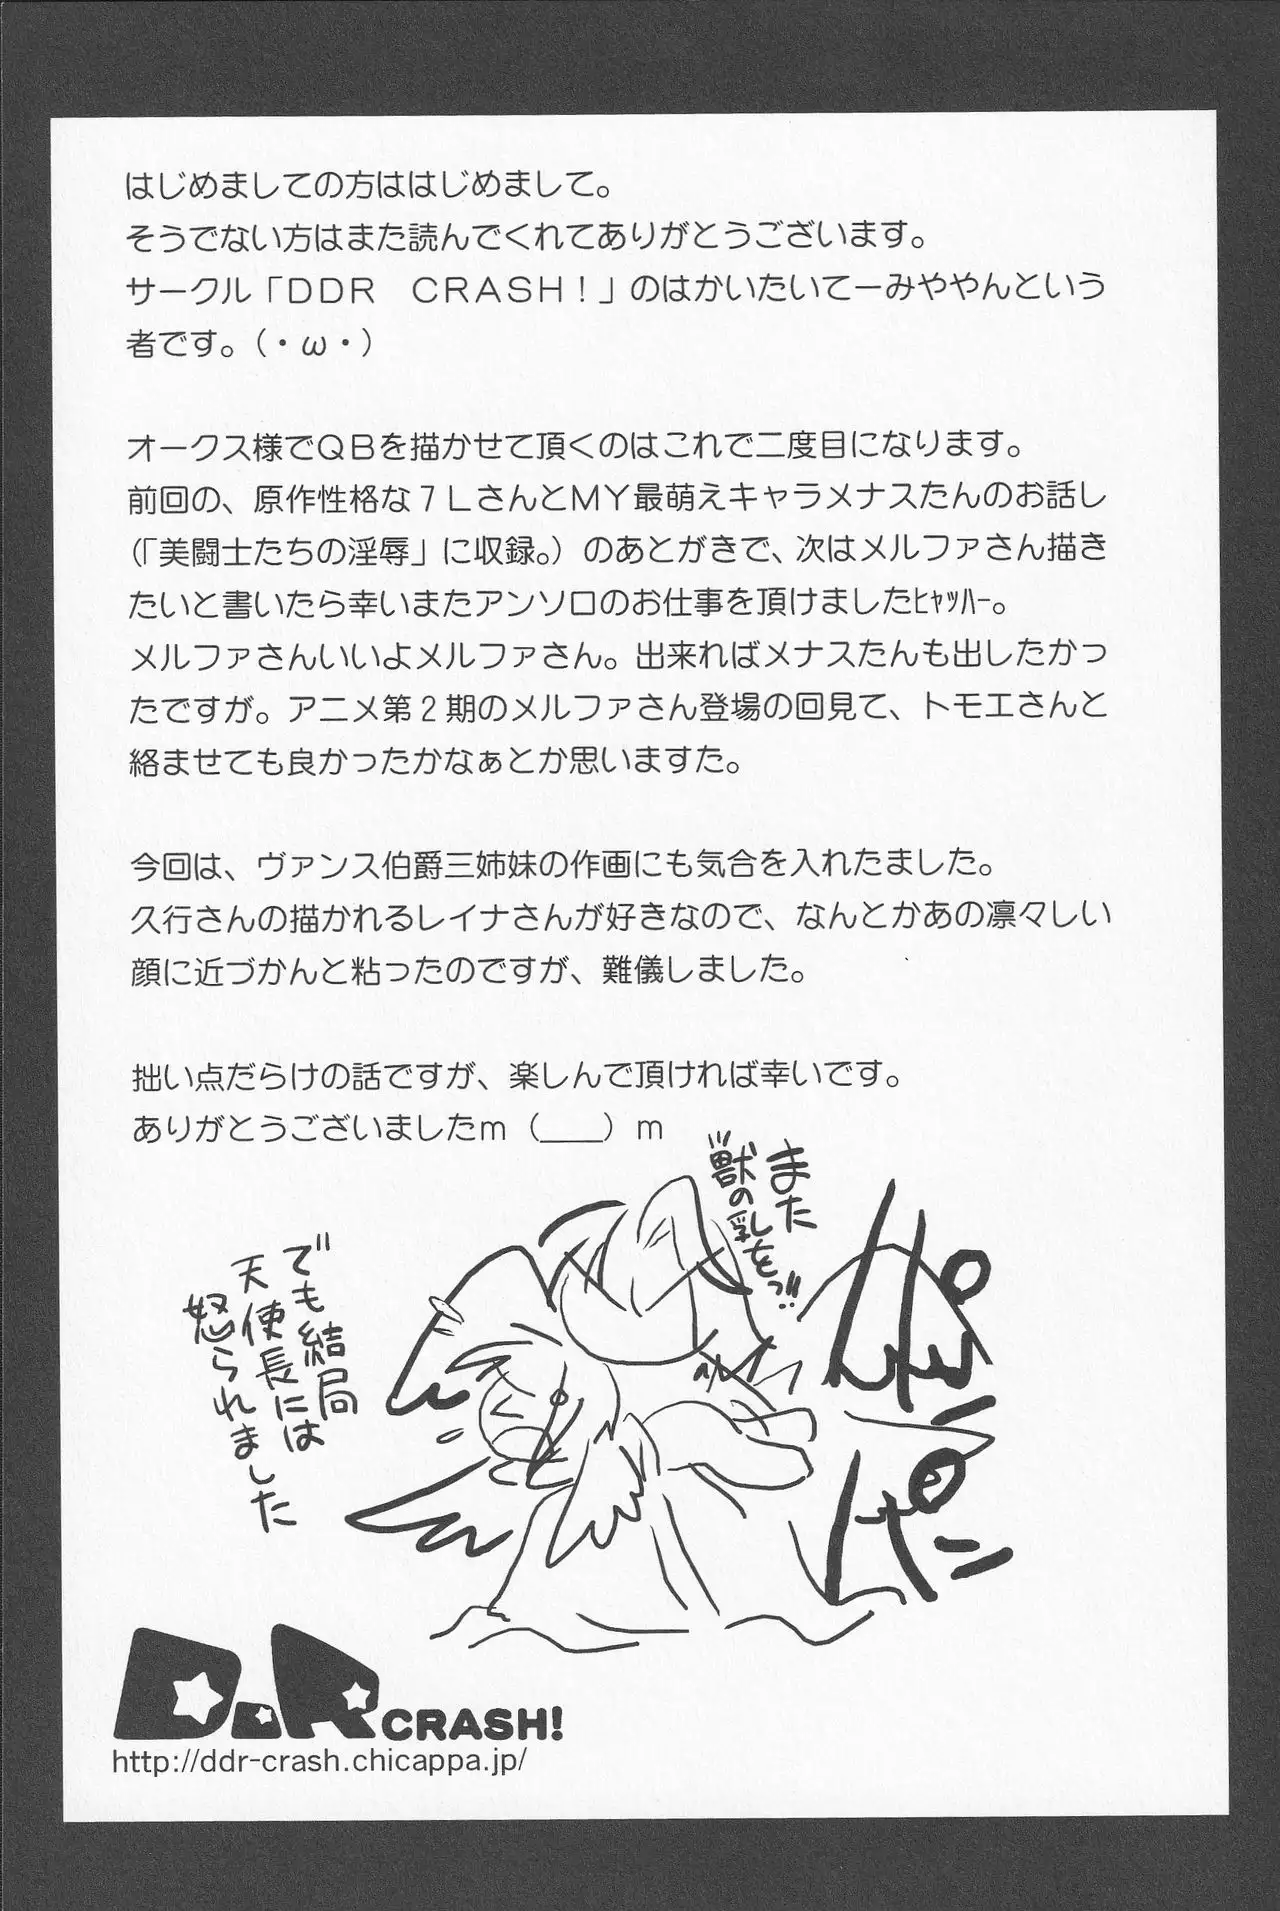 はじめましての方ははじめまして。
そうでない方はまた読んでくれてありがとうございます。
サークル「ＤＤＲ　ＣＲＡＳＨ！」のはかいたいてーみややんという
者です。（・ω・）
オークス様でＱＢを描かせて頂くのはこれで二度目になります。
前回の、原作性格な７ＬさんとＭＹ最萌えキャラメナスたんのお話し
（「美闘士たちの淫辱」に収録。）のあとがきで、次はメルファさん描き
たいと書いたら幸いまたアンソロのお仕事を頂けましたﾋｬｯﾊｰ。
メルファさんいいよメルファさん。出来ればメナスたんも出したかっ
たですが。アニメ第２期のメルファさん登場の回見て、トモエさんと
絡ませても良かったかなぁとか思いますた。
今回は、ヴァンス伯爵三姉妹の作画にも気合を入れたました。
久行さんの描かれるレイナさんが好きなので、なんとかあの凛々しい
顔に近づかんと粘ったのですが、難儀しました。
拙い点だらけの話ですが、楽しんで頂ければ幸いです。
ありがとうございましたｍ（＿＿）ｍ
また
獣の乳をっ!!
パン
パン
でも結局
天使長には
怒られました
DDR CRASH!
http://ddr-crash.chicappa.jp/